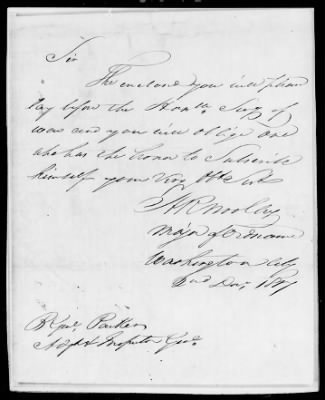 Sir
The enclosed you will please
lay before the Honble. Secy of
war and you will oblige one
who has the honor to Subscribe
himself your Very Obt Svt
Major of Ordnance
Washington City
2nd Dec.
B Genl. Parker
Adjt & Inspector Genl.